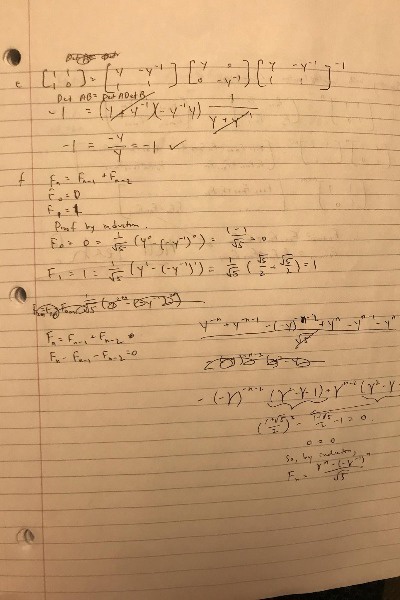 e [1 1 1 0] = [γ -γ⁻¹ 1 1] [γ 0 0 -γ⁻¹] [γ -γ⁻¹ 1 1]⁻¹
Det AB = Det A Det B
-1 = (γ + γ⁻¹)(-γ⁻¹γ) 1/(γ + γ⁻¹)
-1 = -γ/γ = -1 ✓
f Fₙ = Fₙ₋₁ + Fₙ₋₂
F₀ = 0
F₁ = 1
Proof by induction.
F₀ = 0 = 1/√5 (γ⁰ - (-γ⁻¹)⁰) = (1-1)/√5 = 0
F₁ = 1 = 1/√5 (γ¹ - (-γ⁻¹)¹) = 1/√5 (√5/2 + √5/2) = 1
Fₙ = Fₙ₋₁ + Fₙ₋₂
Fₙ - Fₙ₋₁ - Fₙ₋₂ = 0
- (-γ)⁻ⁿ⁻² (γ² - γ - 1) + γⁿ⁻² (γ² - γ -
0 = 0
So, by induction,
Fₙ = (γⁿ - (-γ⁻¹)ⁿ)/√5